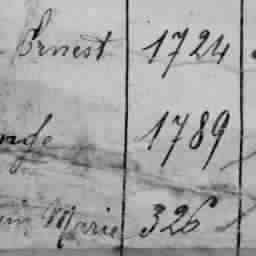 Ernest 1724
1789
Marie 326